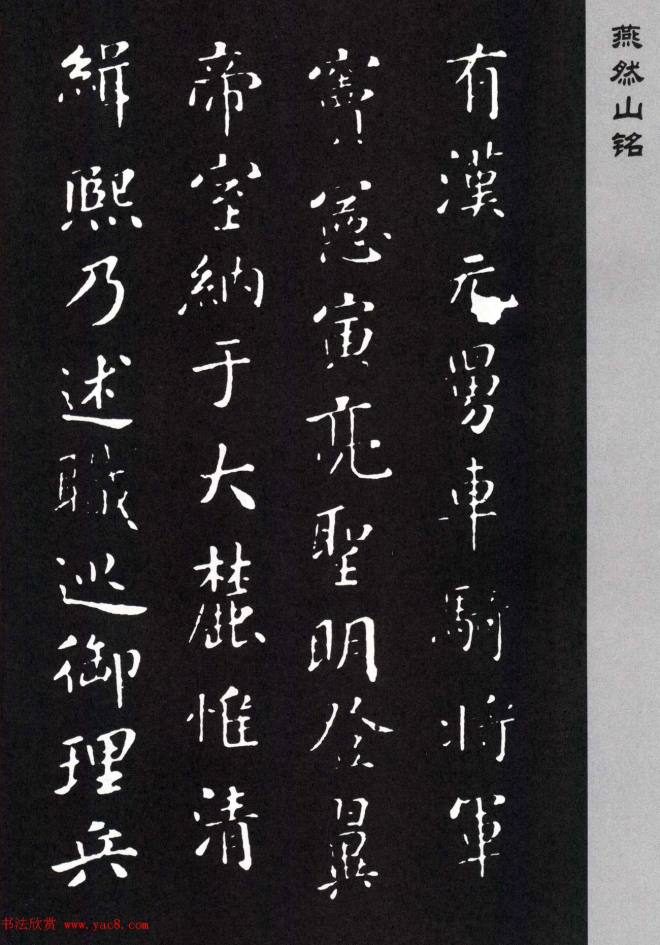 燕然山铭
有漢元舅車騎將軍
竇憲寅亮聖明登翼
帝室納于大麓惟清
緝熙乃述職巡御理兵
书法欣赏 www.yac8.com